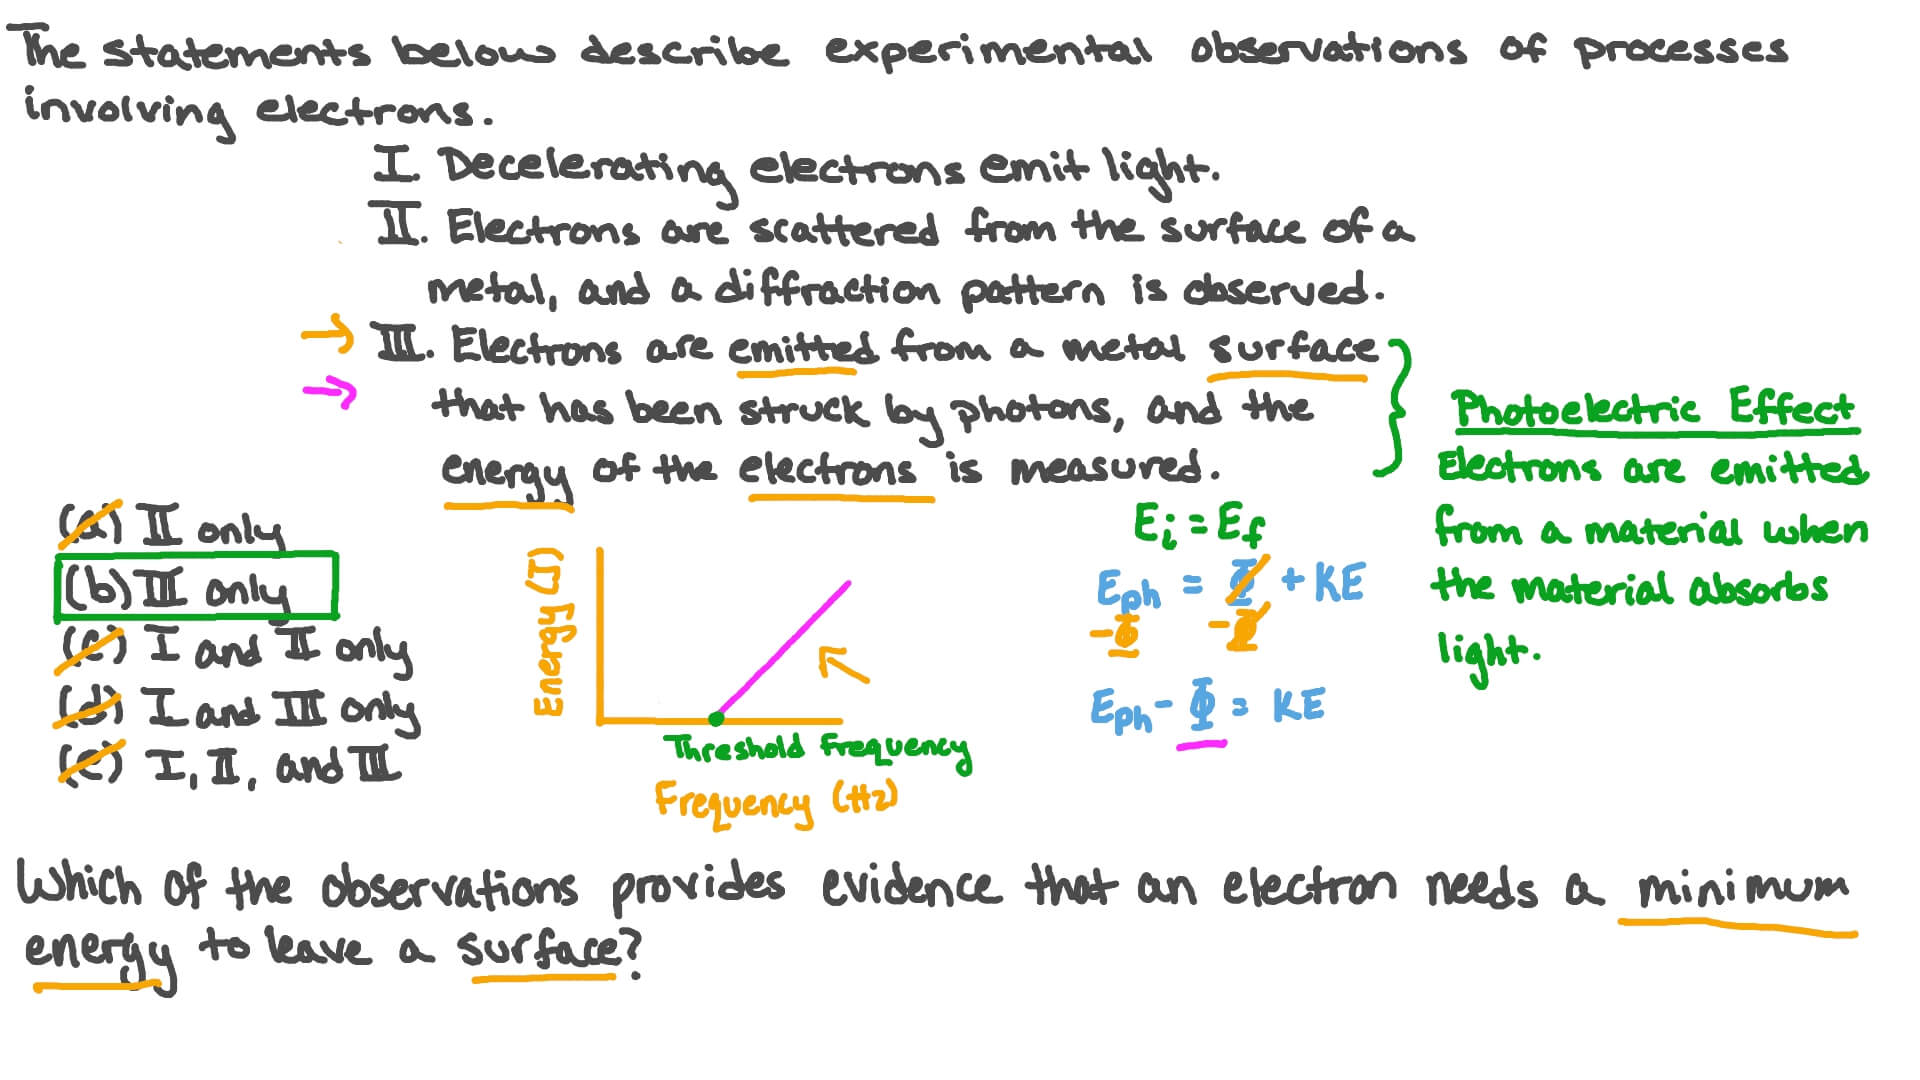 The statements below describe experimental observations of processes
involving electrons.
I. Decelerating electrons emit light.
II. Electrons are scattered from the surface of a
metal, and a diffraction pattern is observed.
III. Electrons are emitted from a metal surface
that has been struck by photons, and the
energy of the electrons is measured.
Photoelectric Effect
Electrons are emitted
from a material when
the material absorbs
light.
(a) II only
(b) III only
(c) I and II only
(d) I and III only
(e) I, II, and III
Energy (J)
Threshold Frequency
Frequency (Hz)
Ei = Ef
Eph = Φ + KE
-Φ -Φ
Eph - Φ = KE
Which of the observations provides evidence that an electron needs a minimum
energy to leave a surface?